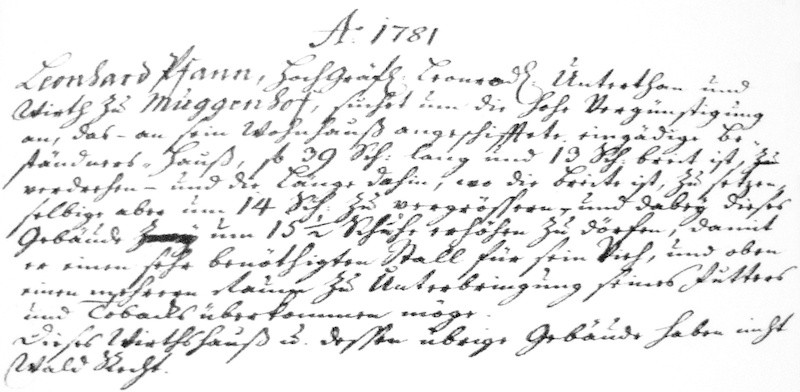 Ao 1781
Leonhard Pfann, HochGräfl: Leonrod: Unterthan und
Wirth zu Muggenhof, suchet um die hohe Vergünstigung
an, das an sein Wohnhauß angeschifftete eingädige Be-
ständners-Hauß, so 39 Sch: lang und 13 Sch: breit ist, zu
verdrehen - und die Länge dahin, wo die breite ist, zu setzen,
selbige aber um 14 Sch: zu vergrössern, und dabey dieses
Gebäude um 15 ½ Schuhe erhöhen zu dörfen, damit
er einen sehr benöthigten Stall für sein Vieh, und oben
einen mehrern Raum zu Unterbringung seines Futters
und Tobacks überkommen möge.
Dieses Wirthshauß u. dessen übrige Gebäude haben nicht
Wald Recht.